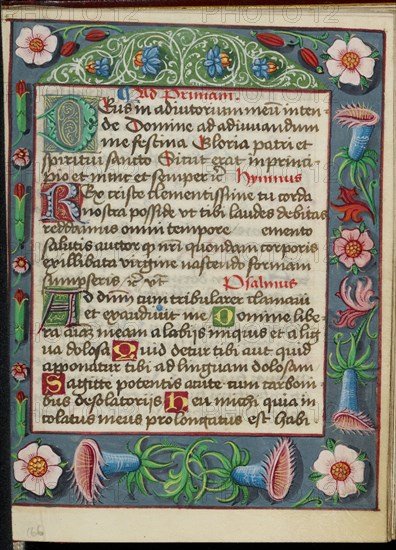 Ad Primam.
Deus in adiutorium meu inten
de Domine ad adiuuandum
me festina Gloria patri et
spiritui sancto Sicut erat in princi
pio et nunc et semper Hymnus
Rex criste clementissime tu corda
nostra posside vt tibi laudes debitas
reddamus omni tempore emento
salutis auctor nri quondam corporis
ex illibata virgine nascendo formam
sumpseris Psalmus
Ad dnm cum tribularer clamaui
et exaudiuit me Domine libe
ra meam a labijs iniquis et a lig
ua dolosa Quid detur tibi aut quid
apponatur tibi ad linguam dolosam
Sagitte potentis acute cum carbon
bus desolatorijs Heu michi quia in
colatus meus prolongatus est habi